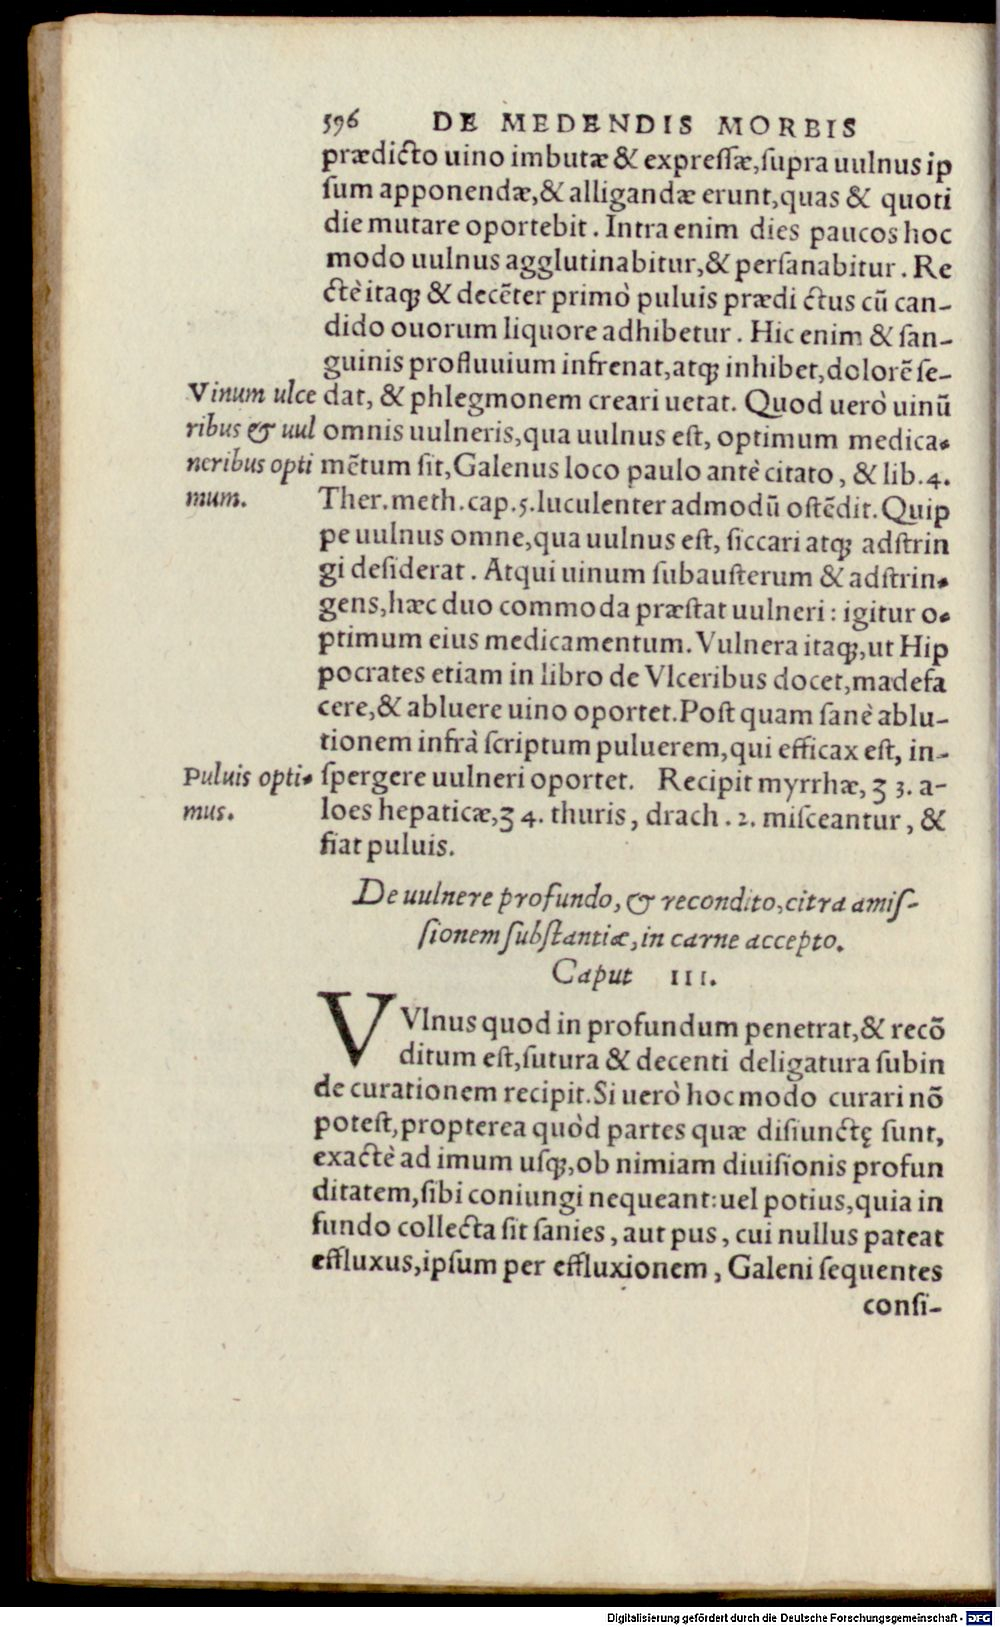 596 DE MEDENDIS MORBIS
prædicto uino imbutæ & expreſſæ,ſupra uulnus ip
ſum apponendæ,& alligandæ erunt,quas & quoti
die mutare oportebit. Intra enim dies paucos hoc
modo uulnus agglutinabitur,& perſanabitur. Re
ctè itaqꝫ & decẽter primò puluis prædi ctus cũ can-
dido ouorum liquore adhibetur. Hic enim & ſan-
guinis profluuium infrenat,atqꝫ inhibet,dolorẽ ſe-
Vinum ulce
dat, & phlegmonem creari uetat. Quod uerò uinũ
ribus & uul
omnis uulneris,qua uulnus eſt, optimum medica-
neribus opti
mẽtum ſit,Galenus loco paulo antè citato, & lib.4.
mum.
Ther.meth.cap.5.luculenter admodũ oſtẽdit.Quip
pe uulnus omne,qua uulnus eſt, ſiccari atqꝫ adſtrin
gi deſiderat. Atqui uinum ſubauſterum & adſtrin-
gens,hæc duo commoda præſtat uulneri: igitur o-
ptimum eius medicamentum. Vulnera itaqꝫ,ut Hip
pocrates etiam in libro de Vlceribus docet,madefa
cere,& abluere uino oportet.Poſt quam ſanè ablu-
tionem infrà ſcriptum puluerem,qui efficax eſt, in-
Puluis opti-
ſpergere uulneri oportet. Recipit myrrhæ, ʒ 3. a-
mus.
loes hepaticæ,ʒ 4. thuris, drach. 2. miſceantur, &
fiat puluis.
De uulnere profundo, & recondito,citra amiſ-
ſionem ſubſtantiæ,in carne accepto.
Caput III.
VVlnus quod in profundum penetrat,& recõ
ditum eſt,ſutura & decenti deligatura ſubin
de curationem recipit.Si uerò hoc modo curari nõ
poteſt,propterea quòd partes quæ diſiunctę ſunt,
exactè ad imum uſqꝫ,ob nimiam diuiſionis profun
ditatem,ſibi coniungi nequeant:uel potius,quia in
fundo collecta ſit ſanies, aut pus, cui nullus pateat
effluxus,ipſum per effluxionem, Galeni ſequentes
conſi-
Digitalisierung gefördert durch die Deutsche Forschungsgemeinschaft - DFG